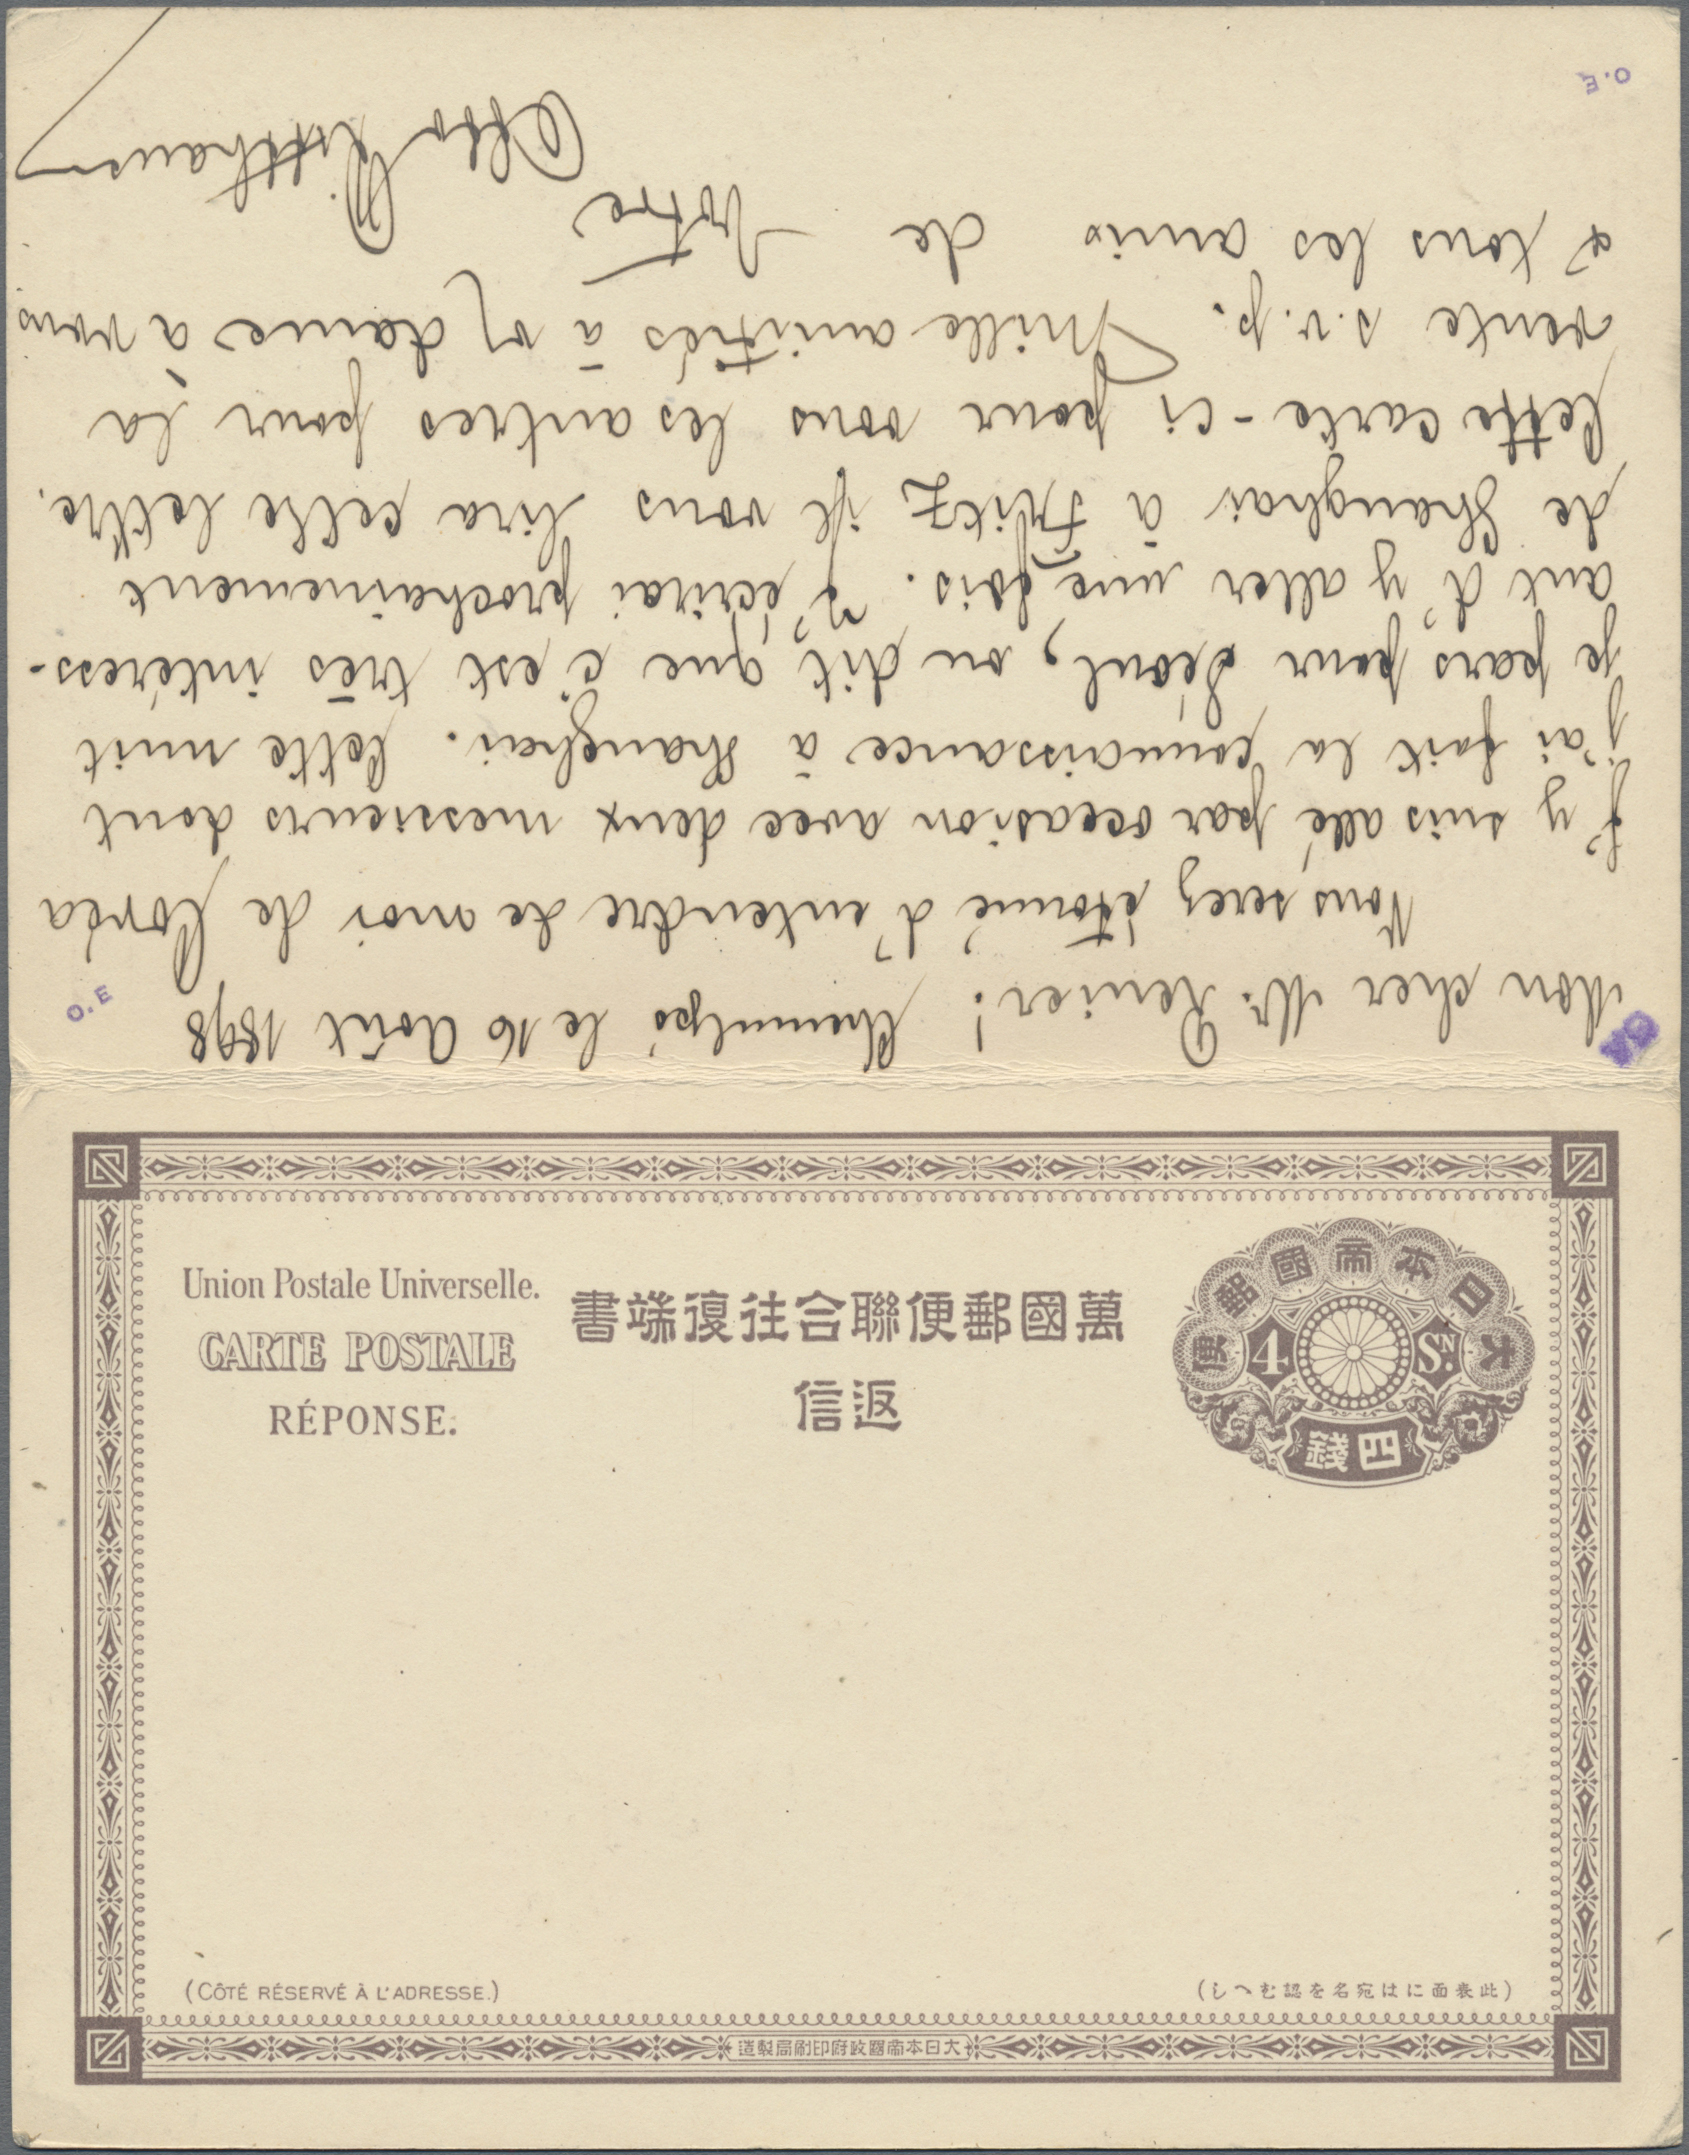 Mon cher Mr. Renier! Chemulpó le 16 Août 1898
Vous serez étonné d'entendre de moi de Coréa
J'y suis allé par occasion avec deux messieurs dont
j'ai fait la connaissance à Shanghai. Cette nuit
je pars pour Séoul, on dit, que c'est très intéress-
ant d'y aller une fois. J'écrirai prochainement
de Shanghai à Fritz, il vous lira cette lettre.
Cette carte-ci pour vous les autres pour la
vente s.v.p. Mille amitiés à dame à vous
& tous les amis de Votre
Otto
O.E
O.E
Union Postale Universelle.
CARTE POSTALE
RÉPONSE.
書端復往合聯便郵國萬
信返
大日本帝國郵便
4 SN.
錢四
(CÔTÉ RÉSERVÉ À L'ADRESSE.)
(しへむ認を名宛はに面表此)
造製局刷印府政國帝本日大